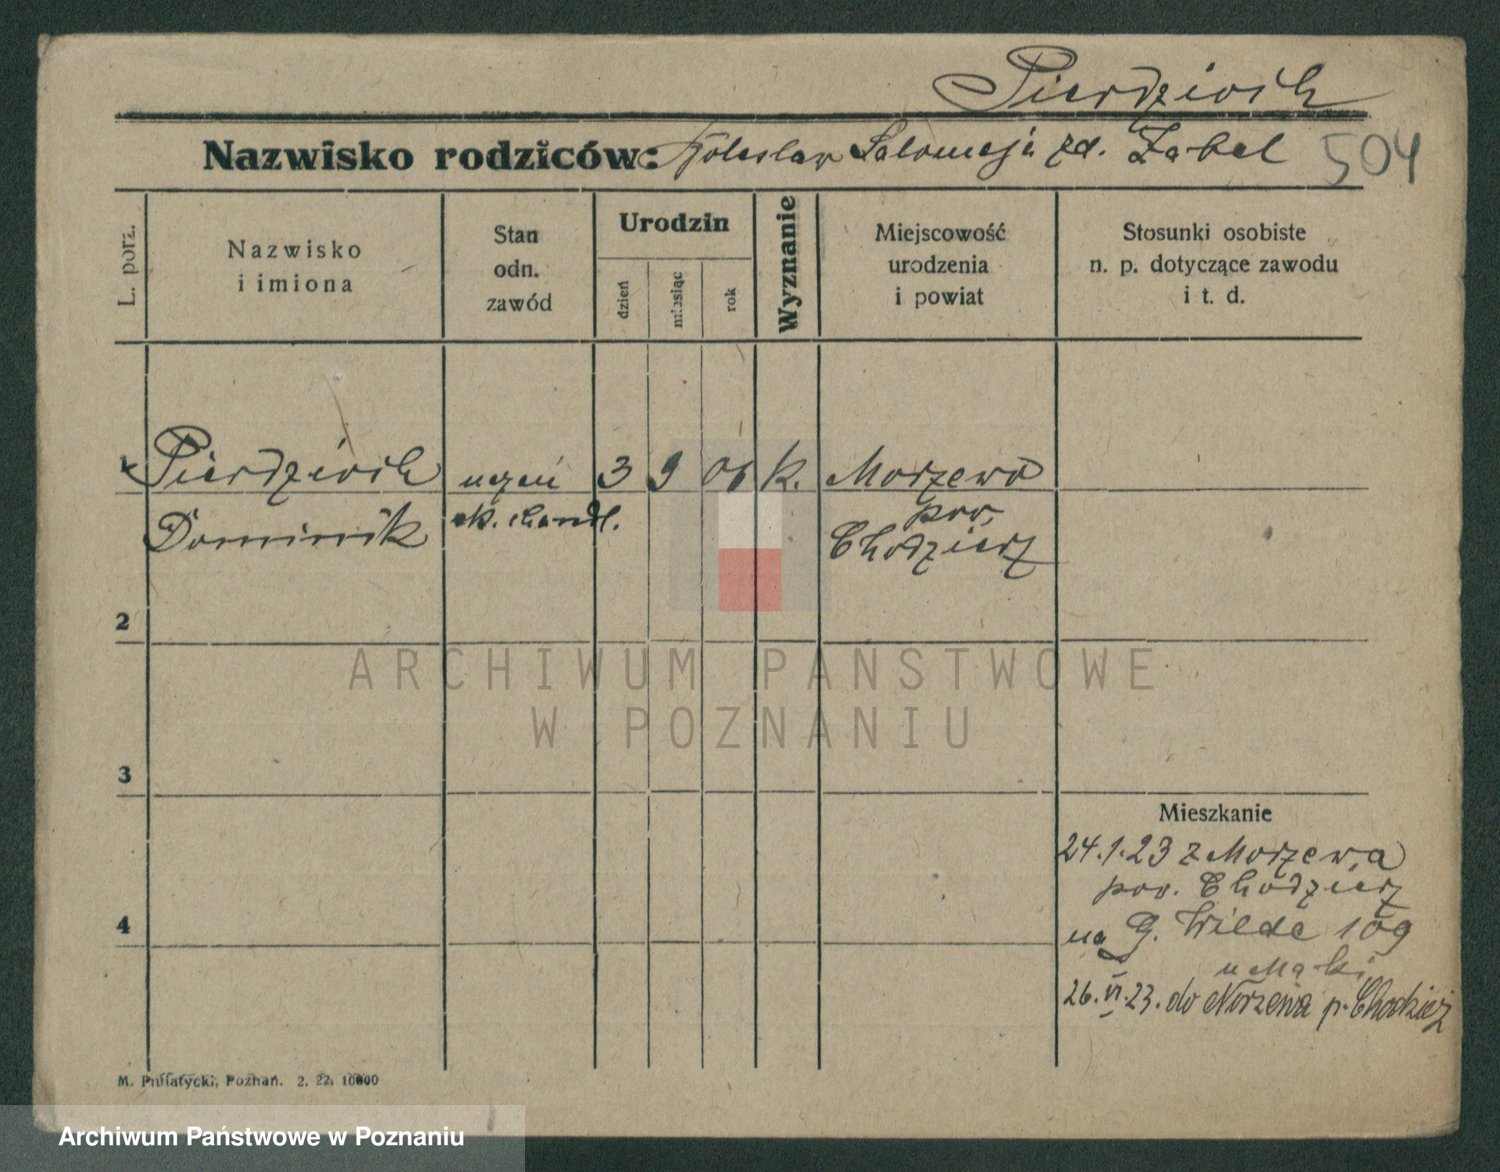 Pierdzioch
Nazwisko rodziców: Bolesław Salomeja zd. Zabel 504
L. porz.
Nazwisko
i imiona
Stan
odn.
zawód
Urodzin
dzień
miesiąc
rok
Wyznanie
Miejscowość
urodzenia
i powiat
Stosunki osobiste
n. p. dotyczące zawodu
i t. d.
1 Pierdzioch uczeń 3 9 06 k. Morzewo
Dominik sk. handl. pow.
Chodzież
2
3
4
Mieszkanie
24.1.23 z Morzewa
pow. Chodzież
na G. Wilda 109
u Mąki
26.VI.23. do Morzewa p. Chodzież
M. Pniatycki, Poznań. 2. 22. 10000
ARCHIWUM PAŃSTWOWE
W POZNANIU
Archiwum Państwowe w Poznaniu